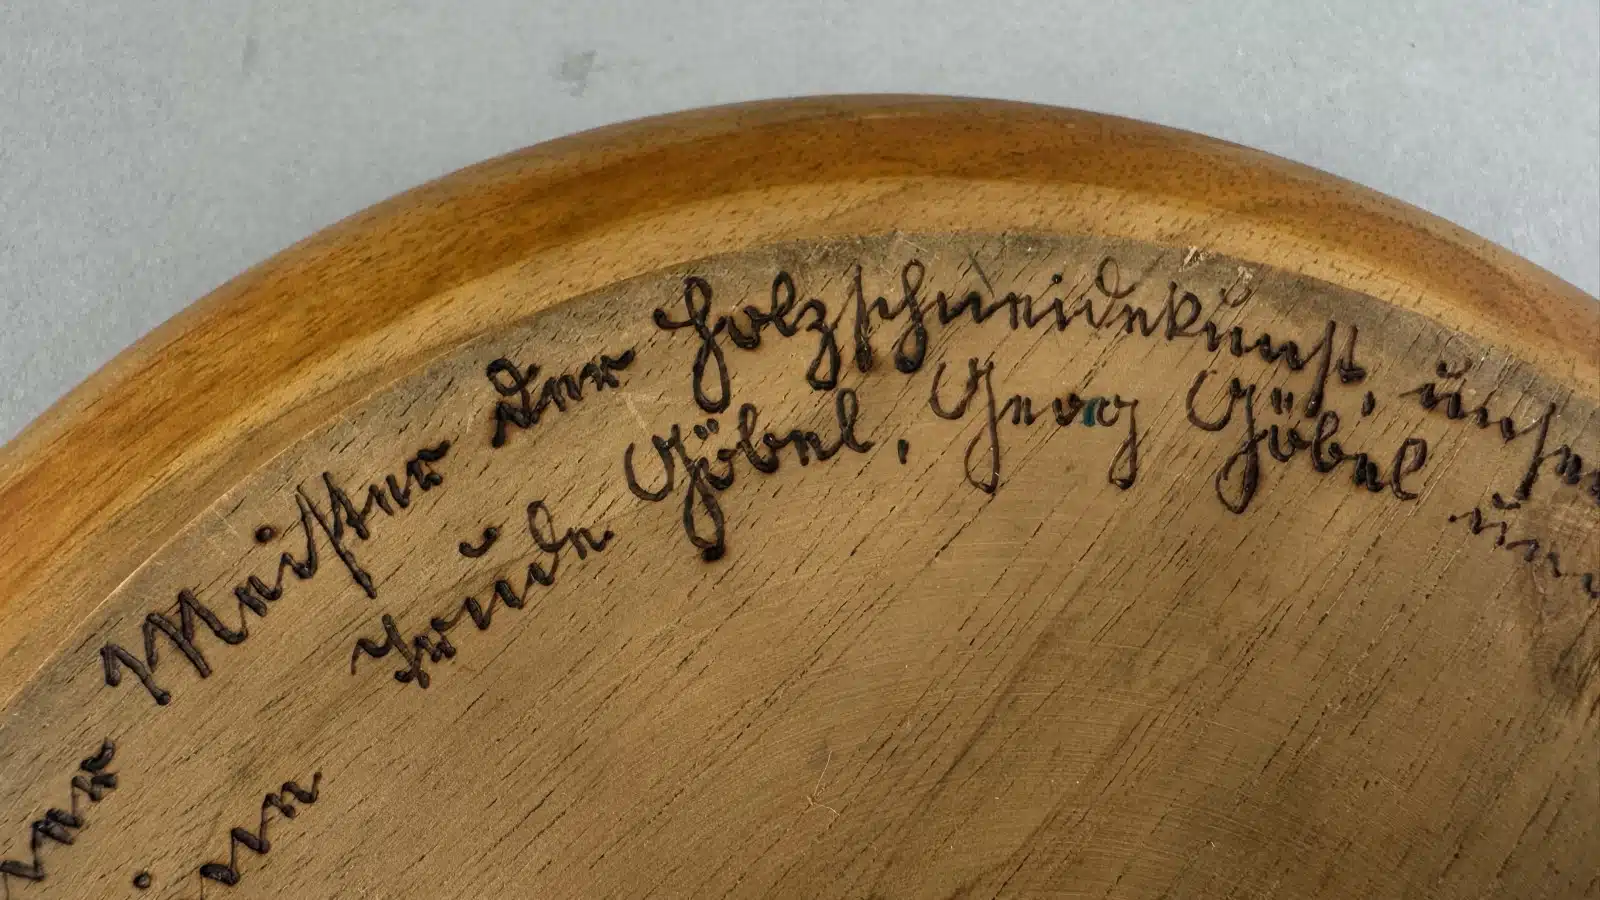 Meister der Holzschneidekunst, unser
Trude Göbel, Georg Göbel und